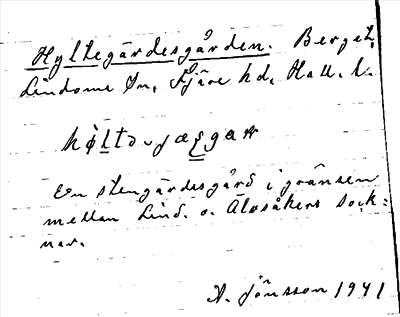 Hyltegärdesgården. Berget,
Lindome sn, Fjäre hd, Hall. l.
En stengärdesgård i gränsen
mellan Lind. o. Älvsåkers sock=
nar.
A. Jönsson 1941